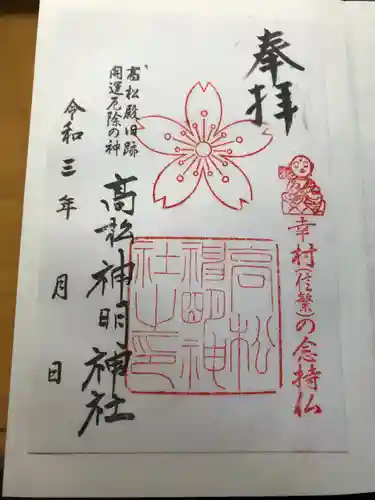 奉拝
幸村(信繁)の念持仏
高松神明神社之印
高松殿旧跡
開運厄除の神
高松神明神社
令和三年 月 日